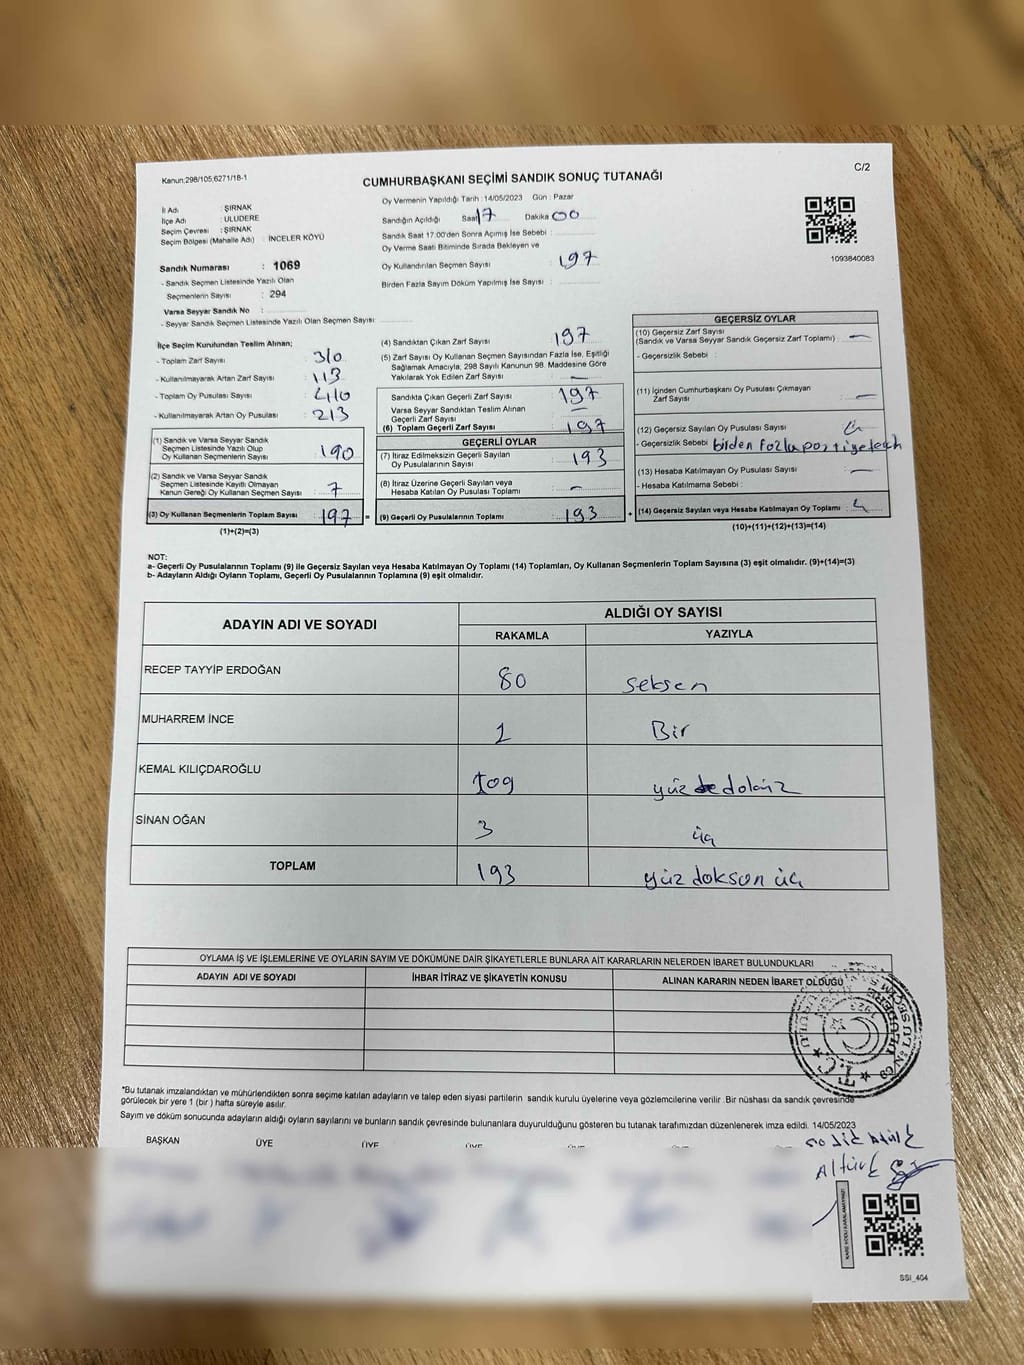 Kanun;298/105;6271/18-1
C/2
CUMHURBAŞKANI SEÇİMİ SANDIK SONUÇ TUTANAĞI
İl Adı : ŞIRNAK
İlçe Adı : ULUDERE
Seçim Çevresi : ŞIRNAK
Seçim Bölgesi (Mahalle Adı) : İNCELER KÖYÜ
Sandık Numarası : 1069
- Sandık Seçmen Listesinde Yazılı Olan
Seçmenlerin Sayısı : 294
Varsa Seyyar Sandık No :
- Seyyar Sandık Seçmen Listesinde Yazılı Olan Seçmen Sayısı:
Oy Vermenin Yapıldığı Tarih : 14/05/2023 Gün : Pazar
Sandığın Açıldığı Saat 17 Dakika 00
Sandık Saat 17.00'den Sonra Açımış İse Sebebi :
Oy Verme Saati Bitiminde Sırada Bekleyen ve
Oy Kullandırılan Seçmen Sayısı : 197
Birden Fazla Sayım Döküm Yapılmış İse Sayısı :
1093840083
İlçe Seçim Kurulundan Teslim Alınan;
- Toplam Zarf Sayısı : 310
- Kullanılmayarak Artan Zarf Sayısı : 113
- Toplam Oy Pusulası Sayısı : 410
- Kullanılmayarak Artan Oy Pusulası : 213
(1) Sandık ve Varsa Seyyar Sandık
Seçmen Listesinde Yazılı Olup
Oy Kullanan Seçmenlerin Sayısı : 190
(2) Sandık ve Varsa Seyyar Sandık
Seçmen Listesinde Kayıtlı Olmayan
Kanun Gereği Oy Kullanan Seçmen Sayısı : 7
(3) Oy Kullanan Seçmenlerin Toplam Sayısı : 197 =
(1)+(2)=(3)
(4) Sandıktan Çıkan Zarf Sayısı : 197
(5) Zarf Sayısı Oy Kullanan Seçmen Sayısından Fazla İse, Eşitliği
Sağlamak Amacıyla, 298 Sayılı Kanunun 98. Maddesine Göre
Yakılarak Yok Edilen Zarf Sayısı : —
Sandıkta Çıkan Geçerli Zarf Sayısı : 197
Varsa Seyyar Sandıktan Teslim Alınan
Geçerli Zarf Sayısı : —
(6) Toplam Geçerli Zarf Sayısı : 197
GEÇERLİ OYLAR
(7) İtiraz Edilmeksizin Geçerli Sayılan
Oy Pusulalarının Sayısı : 193
(8) İtiraz Üzerine Geçerli Sayılan veya
Hesaba Katılan Oy Pusulası Toplamı : —
(9) Geçerli Oy Pusulalarının Toplamı : 193 +
GEÇERSİZ OYLAR
(10) Geçersiz Zarf Sayısı
(Sandık ve Varsa Seyyar Sandık Geçersiz Zarf Toplamı) : —
- Geçersizlik Sebebi :
(11) İçinden Cumhurbaşkanı Oy Pusulası Çıkmayan
Zarf Sayısı : —
(12) Geçersiz Sayılan Oy Pusulası Sayısı : 4
- Geçersizlik Sebebi : birden fazla
(13) Hesaba Katılmayan Oy Pusulası Sayısı : —
- Hesaba Katılmama Sebebi :
(14) Geçersiz Sayılan veya Hesaba Katılmayan Oy Toplamı : 4
(10)+(11)+(12)+(13)=(14)
NOT:
a- Geçerli Oy Pusulalarının Toplamı (9) ile Geçersiz Sayılan veya Hesaba Katılmayan Oy Toplamı (14) Toplamları, Oy Kullanan Seçmenlerin Toplam Sayısına (3) eşit olmalıdır. (9)+(14)=(3)
b- Adayların Aldığı Oyların Toplamı, Geçerli Oy Pusulalarının Toplamına (9) eşit olmalıdır.
ADAYIN ADI VE SOYADI ALDIĞI OY SAYISI
RAKAMLA YAZIYLA
RECEP TAYYİP ERDOĞAN 80 seksen
MUHARREM İNCE 1 Bir
KEMAL KILIÇDAROĞLU 109 yüz
SİNAN OĞAN 3 üç
TOPLAM 193 yüz doksan üç
OYLAMA İŞ VE İŞLEMLERİNE VE OYLARIN SAYIM VE DÖKÜMÜNE DAİR ŞİKAYETLERLE BUNLARA AİT KARARLARIN NELERDEN İBARET BULUNDUKLARI
ADAYIN ADI VE SOYADI İHBAR İTİRAZ VE ŞİKAYETİN KONUSU ALINAN KARARIN NEDEN İBARET OLDUĞU
T.C.
*Bu tutanak imzalandıktan ve mühürlendikten sonra seçime katılan adayların ve talep eden siyasi partilerin sandık kurulu üyelerine veya gözlemcilerine verilir .Bir nüshası da sandık çevresinde
görülecek bir yere 1 (bir ) hafta süreyle asılır.
Sayım ve döküm sonucunda adayların aldığı oyların sayılarını ve bunların sandık çevresinde bulunanlara duyurulduğunu gösteren bu tutanak tarafımızdan düzenlenerek imza edildi. 14/05/2023
BAŞKAN ÜYE ÜYE ÜYE ÜYE
Altürk
KARE KODU KARALAMAYINIZ!
SSİ_404